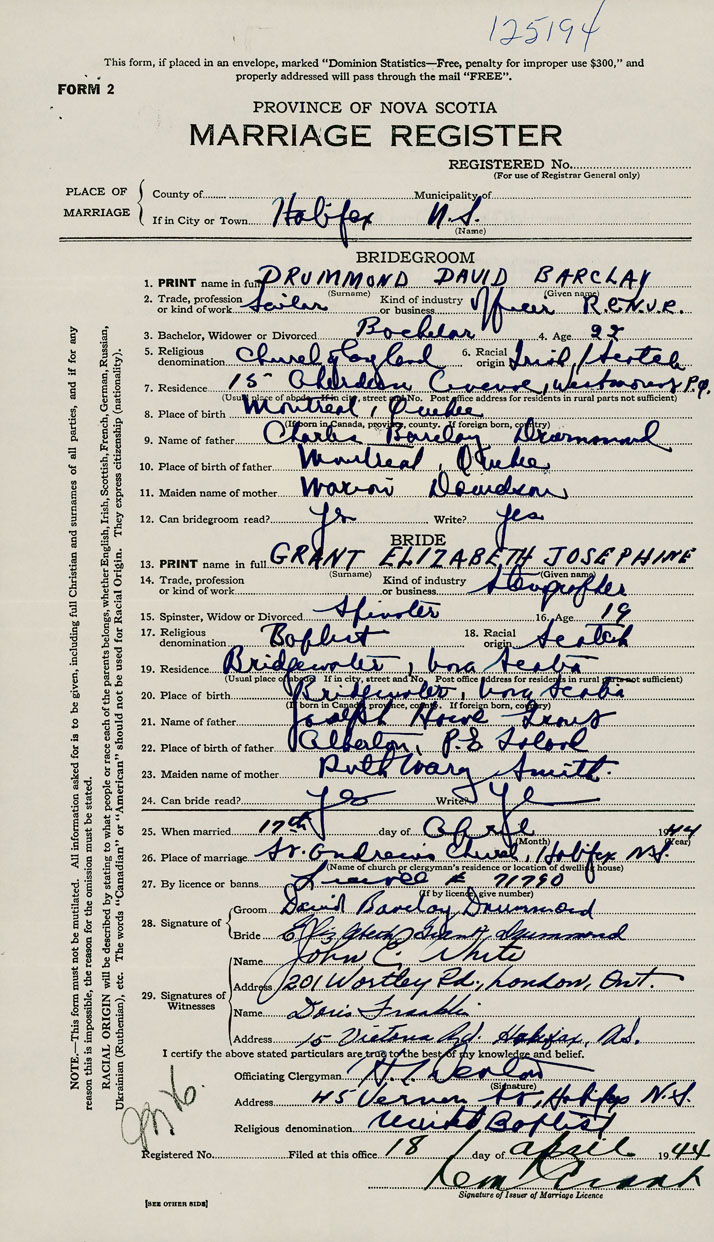 125194
This form, if placed in an envelope, marked “Dominion Statistics—Free, penalty for improper use $300,” and
properly addressed will pass through the mail “FREE”.
FORM 2
PROVINCE OF NOVA SCOTIA
MARRIAGE REGISTER
REGISTERED No.
(For use of Registrar General only)
PLACE OF MARRIAGE
County of Municipality of
If in City or Town Halifax N.S.
(Name)
BRIDEGROOM
1. PRINT name in full DRUMMOND DAVID BARCLAY
(Surname) (Given name)
2. Trade, profession or kind of work Sailor Kind of industry or business Officer R.C.N.V.R.
3. Bachelor, Widower or Divorced Bachelor 4. Age 22
5. Religious denomination Church of England 6. Racial origin Irish / Scotch
7. Residence 15 Aberdeen Avenue, Westmount P.Q.
(Usual place of abode. If in city, street and No. Post office address for residents in rural parts not sufficient)
8. Place of birth Montreal, Quebec
(If born in Canada, province, county. If foreign born, country)
9. Name of father Charles Barclay Drummond
10. Place of birth of father Montreal, Quebec
11. Maiden name of mother Marion Davidson
12. Can bridegroom read? Yes Write? Yes
BRIDE
13. PRINT name in full GRANT ELIZABETH JOSEPHINE
(Surname) (Given name)
14. Trade, profession or kind of work Kind of industry or business Stenographer
15. Spinster, Widow or Divorced Spinster 16. Age 19
17. Religious denomination Baptist 18. Racial origin Scotch
19. Residence Bridgewater, Nova Scotia
(Usual place of abode. If in city, street and No. Post office address for residents in rural parts not sufficient)
20. Place of birth Bridgewater, Nova Scotia
(If born in Canada, province, county. If foreign born, country)
21. Name of father Joseph Howe Grant
22. Place of birth of father Alberton, P.E Island
23. Maiden name of mother Ruth Mary Smith.
24. Can bride read? Yes Write? Yes
25. When married 17th day of April 1944
(Month) (Year)
26. Place of marriage St. Andrews Church, Halifax N.S.
(Name of church or clergyman's residence or location of dwelling house)
27. By licence or banns License # 71790
(If by licence, give number)
28. Signature of
Groom David Barclay Drummond
Bride Elizabeth Grant Drummond
29. Signatures of Witnesses
Name John C. White
Address 201 Wortley Rd., London, Ont.
Name Doris Franklin
Address 15 Victoria Rd. Halifax, N.S.
I certify the above stated particulars are true to the best of my knowledge and belief.
Officiating Clergyman
(Signature)
Address 45 Vernon St, Halifax N.S.
Religious denomination United Baptist
Registered No. Filed at this office 18 day of April 1944
Signature of Issuer of Marriage Licence
[SEE OTHER SIDE]
NOTE.—This form must not be mutilated. All information asked for is to be given, including full Christian and surnames of all parties, and if for any
reason this is impossible, the reason for the omission must be stated.
RACIAL ORIGIN will be described by stating to what people or race each of the parents belongs, whether English, Irish, Scottish, French, German, Russian,
Ukrainian (Ruthenian), etc. The words “Canadian” or “American” should not be used for Racial Origin. They express citizenship (nationality).